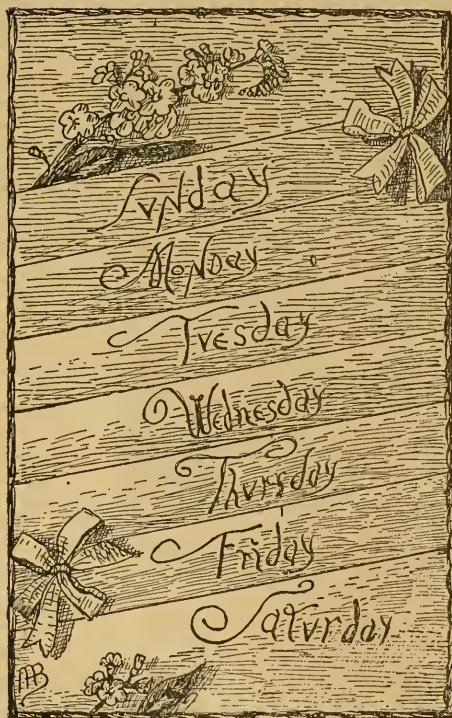 Svnday
Monday
Tvesday
Wednesday
Thvrsday
Friday
Satvrday